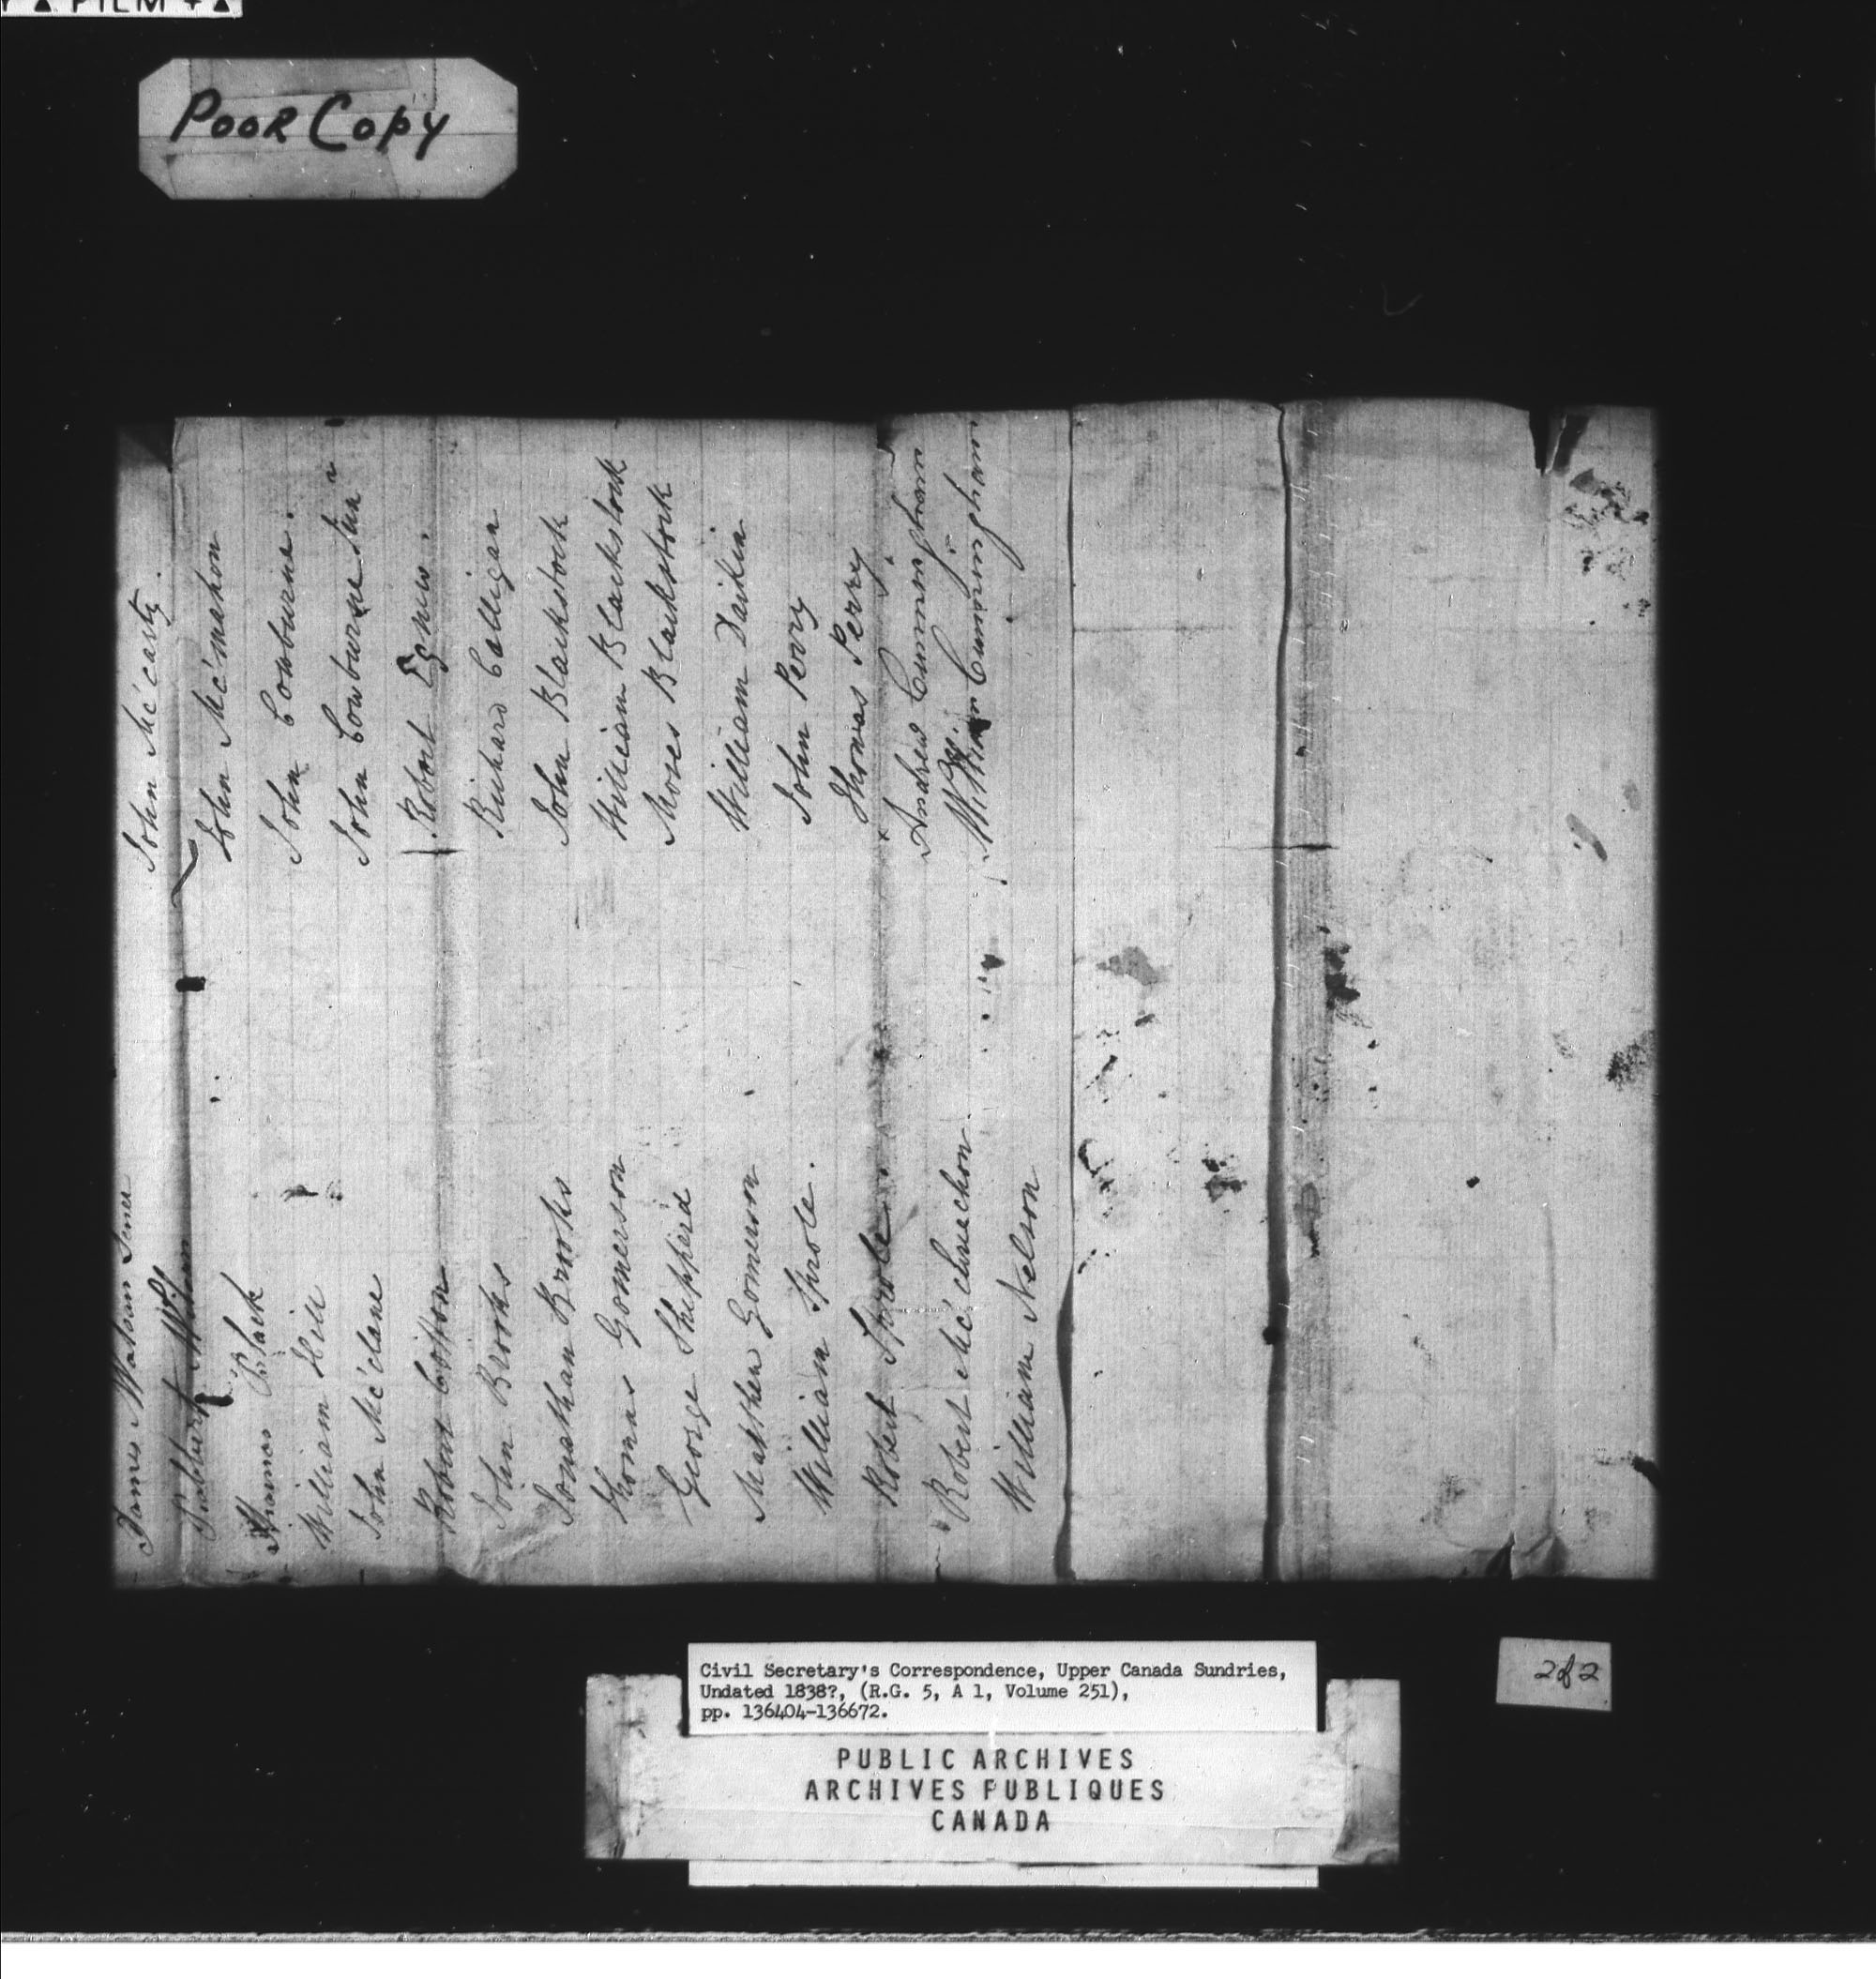 Poor Copy
James Watson Sener
Thomas Black
William Hill
John Mc'clane
Robert Cotton
John Brooks
Jonathan Brooks
Thomas Gomerson
George Shepperd
Matthew Gomerson
William Sprole.
Robert Sprole
Robert Mc'chuechon
William Nelson
John Mc'carty.
John Mc'mahon
John Cowburne.
John Cowburne Jun r
Robert Egnew.
Richard Calligan
John Blackstock
William Blackstock
Moses Blackstock
William Daikin
John Perry
Thomas Perry
Andrew Cunningham
William Cunningham
Civil Secretary's Correspondence, Upper Canada Sundries,
Undated 1838?, (R.G. 5, A 1, Volume 251),
pp. 136404-136672.
2 of 2
PUBLIC ARCHIVES
ARCHIVES PUBLIQUES
CANADA